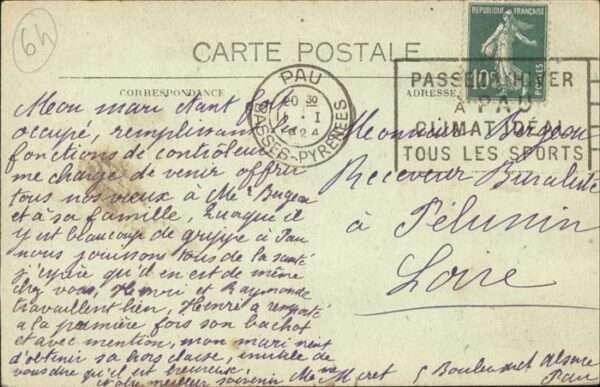 64
CARTE POSTALE
CORRESPONDANCE
ADRESSE
REPUBLIQUE FRANÇAISE
10
PAU
20 30
1 - 1
1924
BASSES-PYRENEES
PASSEZ L'HIVER
A PAU
CLIMAT IDÉAL
TOUS LES SPORTS
Mon mari étant fort
occupé, remplissant les
fonctions de contrôleur
me charge de venir offrir
tous nos vœux à Mr
et à sa famille, quoique il
y est beaucoup de grippe à Pau
nous jouissons tous de la santé
j'espère qu'il en est de même
chez vous, Henri et Raymonde
travaillent bien, Henri a remporté
a la première fois son bachot
et avec mention, mon mari vient
d'obtenir sa hors classe, inutile de
vous dire qu'il est heureux.
Notre meilleur souvenir Me
5 Boulevard Alsace
Pau
Monsieur
Receveur Buraliste
à Pélussin
Loire